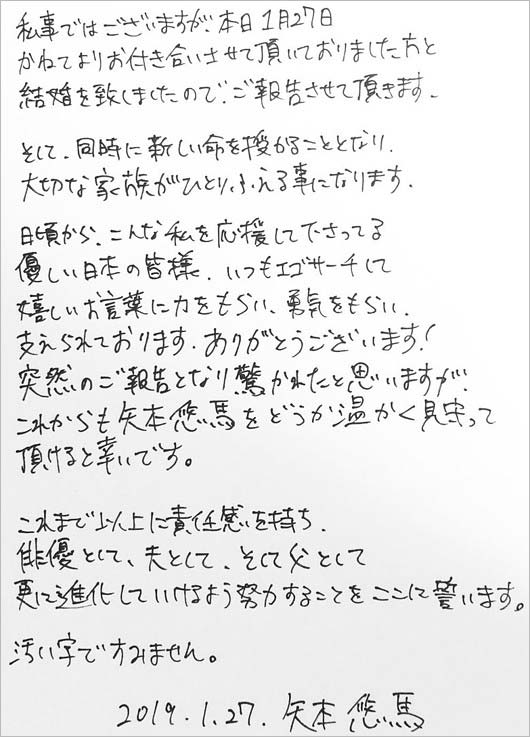 私事ではございますが、本日1月27日
かねてよりお付き合いさせて頂いておりました方と
結婚を致しましたので、ご報告させて頂きます。
そして、同時に新しい命を授かることとなり、
大切な家族がひとりふえる事になります。
日頃から、こんな私を応援して下さってる
優しい日本の皆様、いつもエゴサーチして
嬉しいお言葉に力をもらい、勇気をもらい、
支えられております。ありがとうございます!
突然のご報告となり驚かれたと思いますが、
これからも矢本悠馬をどうか温かく見守って
頂けると幸いです。
これまで以上に責任感いを持ち、
俳優として、夫として、そして父として
更に進化していけるよう努力することをここに誓います。
汚い字ですみません。
2019.1.27. 矢本 悠馬